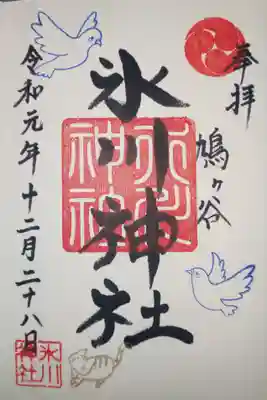 奉拝
鳩ヶ谷
氷川神社
氷川神社
令和元年十二月二十八日
氷川神社